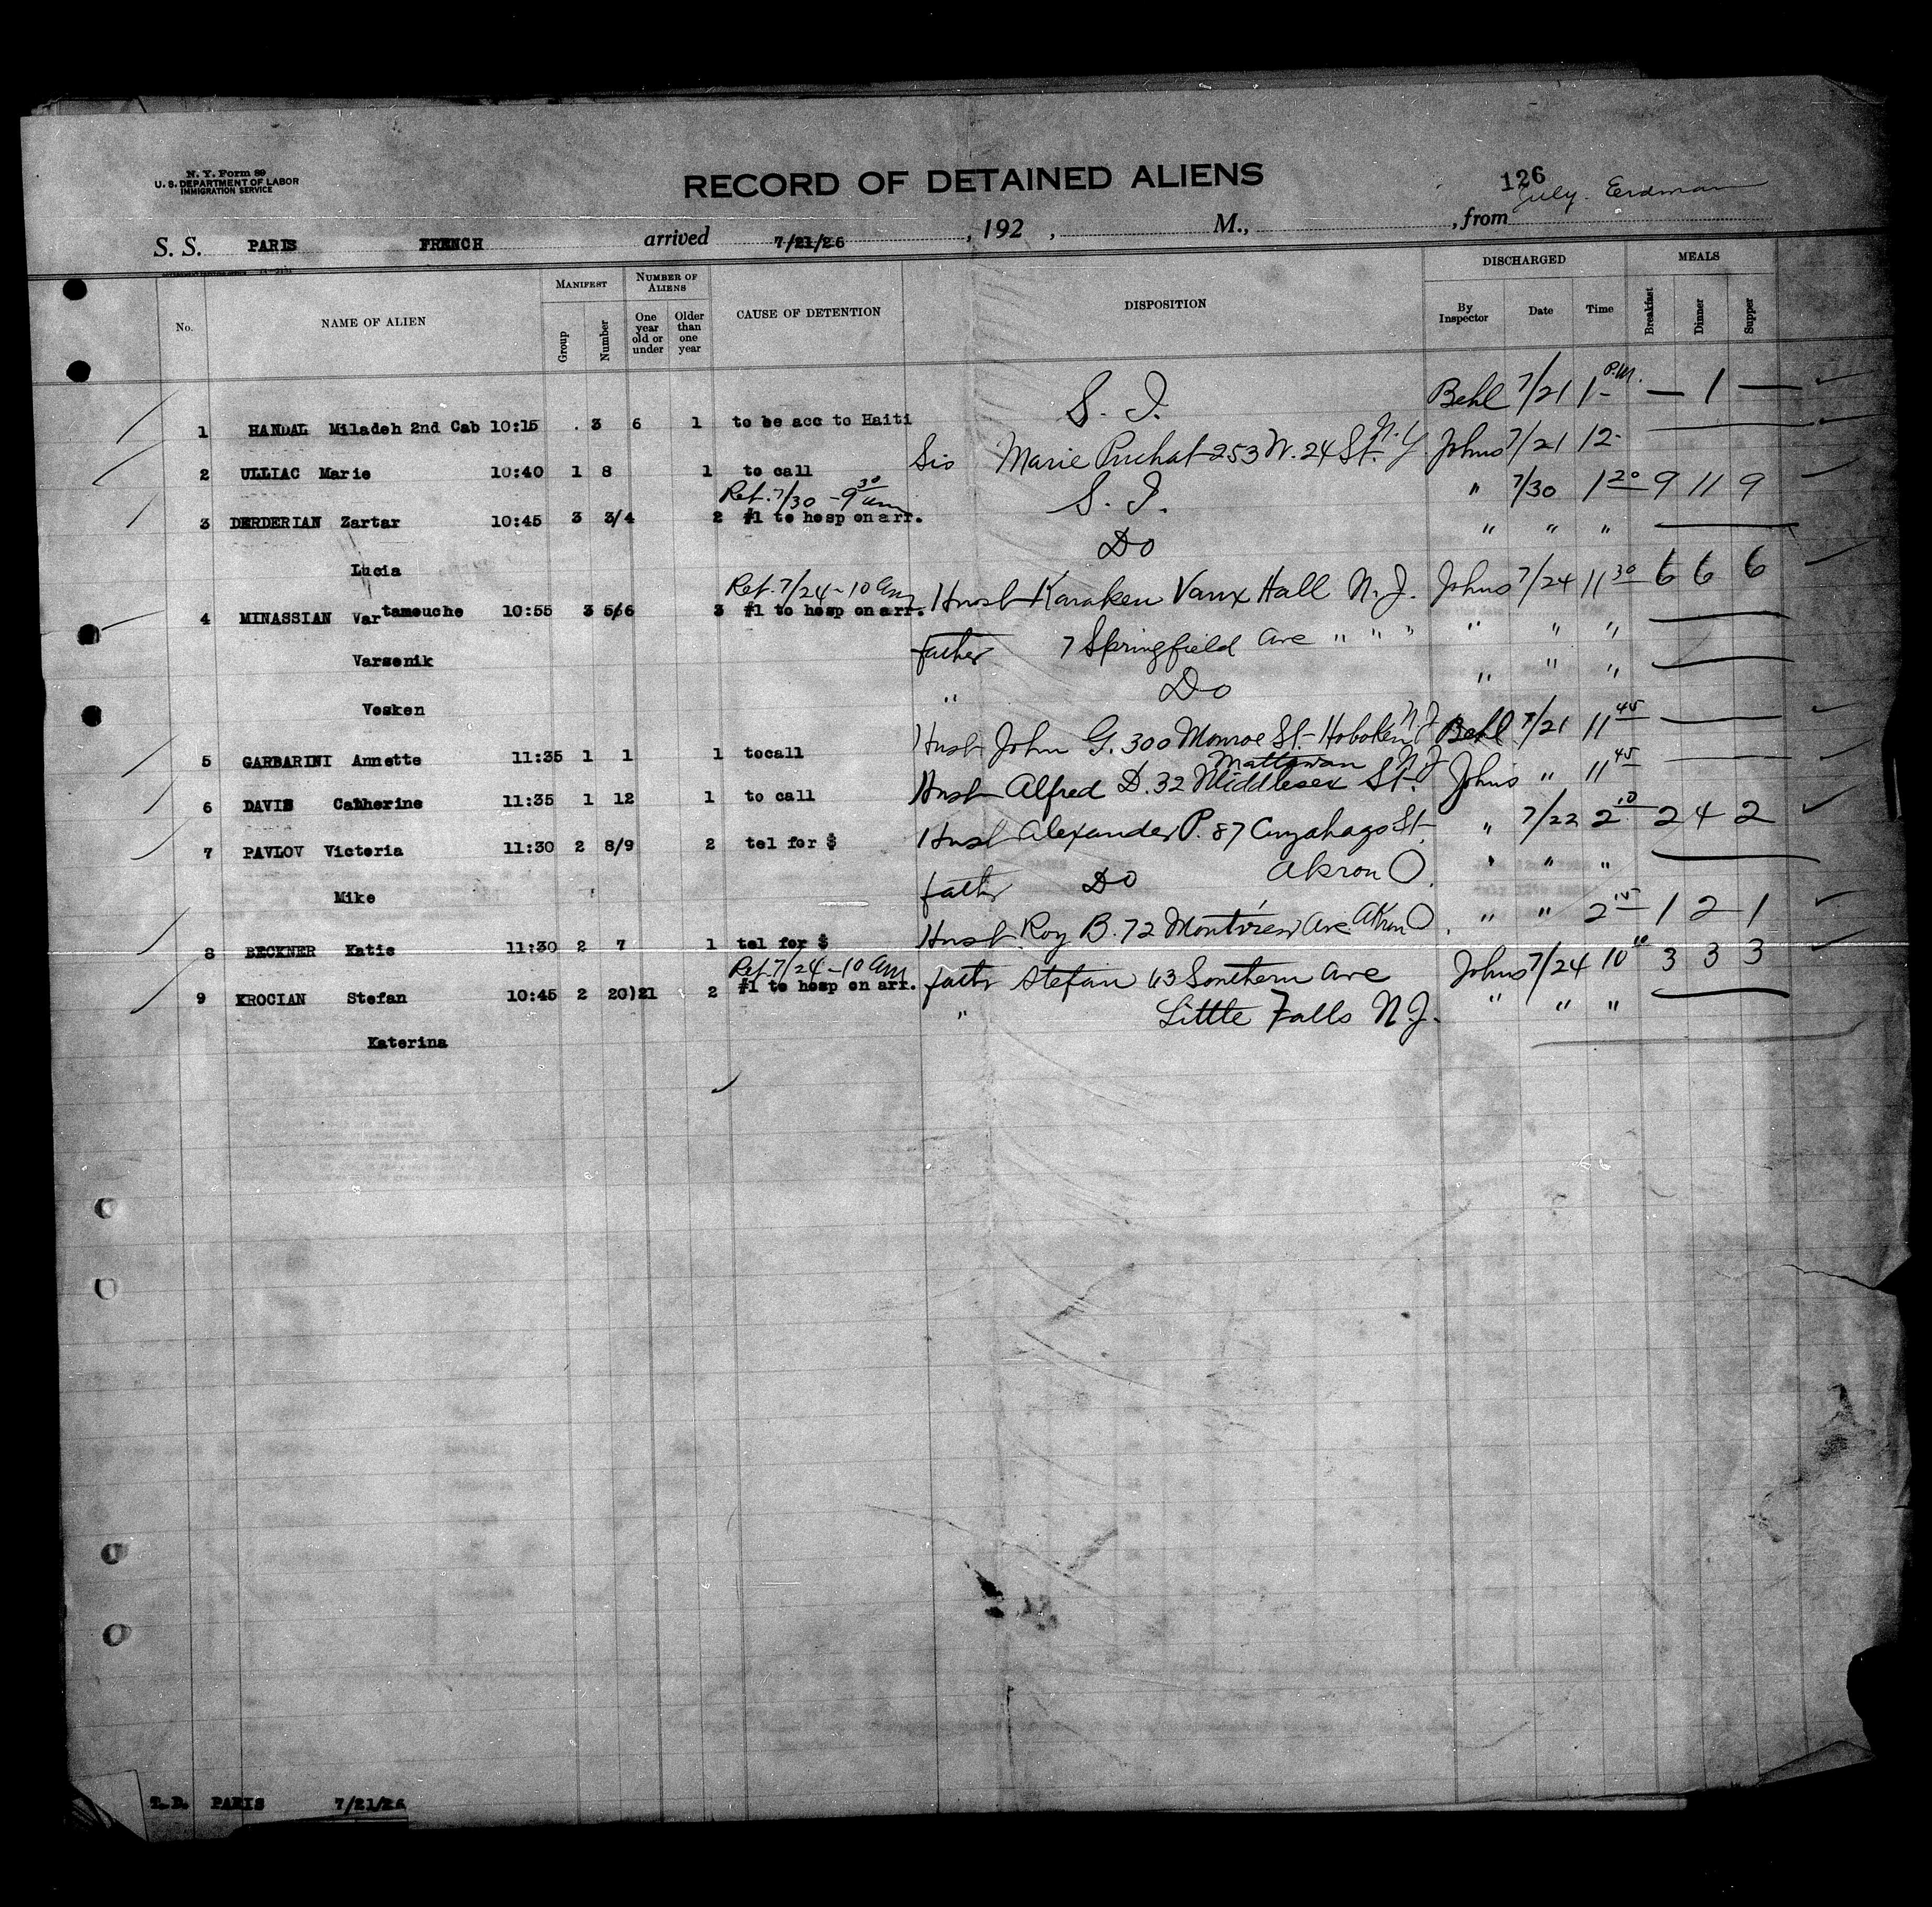 N. Y. Form 89
U. S. DEPARTMENT OF LABOR
IMMIGRATION SERVICE
RECORD OF DETAINED ALIENS
126
July. Erdman
S. S. PARIS FRENCH arrived 7/21/26, 192 , M., , from
No. NAME OF ALIEN MANIFEST Group Number NUMBER OF ALIENS One year old or under Older than one year CAUSE OF DETENTION DISPOSITION DISCHARGED By Inspector Date Time MEALS Breakfast Dinner Supper
1 HANDAL Miladeh 2nd Cab 10:15 . 3 6 1 to be acc to Haiti S. I. Behl 7/21 1- P.M. — 1 —
2 ULLIAC Marie 10:40 1 8 1 to call Sis Marie Puchat 253 W. 24 St. N.Y Johns 7/21 12-
Ret. 7/30 - 9 30 am
3 DERDERIAN Zartar 10:45 3 3/4 2 #1 to hosp on arr. S. I. " 7/30 1 20 9 11 9
Lucia Do " " "
Ret. 7/24 - 10 am
4 MINASSIAN Vartamouche 10:55 3 5/6 3 #1 to hosp on arr. Husb Karaken Vaux Hall N. J. Johns 7/24 11 30 6 6 6
Varsenik father 7 Springfield Ave " " " " " "
Vosken " Do " " "
5 GARBARINI Annette 11:35 1 1 1 tocall Husb John G. 300 Monroe St- Hoboken N.J Behl 7/21 11 45
Mattawan N J
6 DAVIS Catherine 11:35 1 12 1 to call Husb Alfred D. 32 Middlesex St. Johns " 11 45
7 PAVLOV Victoria 11:30 2 8/9 2 tel for $ Husb Alexander P. 87 Cuyahago St- " 7/22 2 10 2 4 2
Akron O.
Mike father Do " " "
8 BECKNER Katie 11:30 2 7 1 tel for $ Husb. Roy B. 72 Montview Ave. Akron O. " " 2 15 1 2 1
Ret. 7/24 - 10 am
9 KROCIAN Stefan 10:45 2 20)21 2 #1 to hosp on arr. father Stefan 63 Southern Ave Johns 7/24 10 10 3 3 3
Katerina " Little Falls N.J. " " "
T.D. PARIS 7/21/26